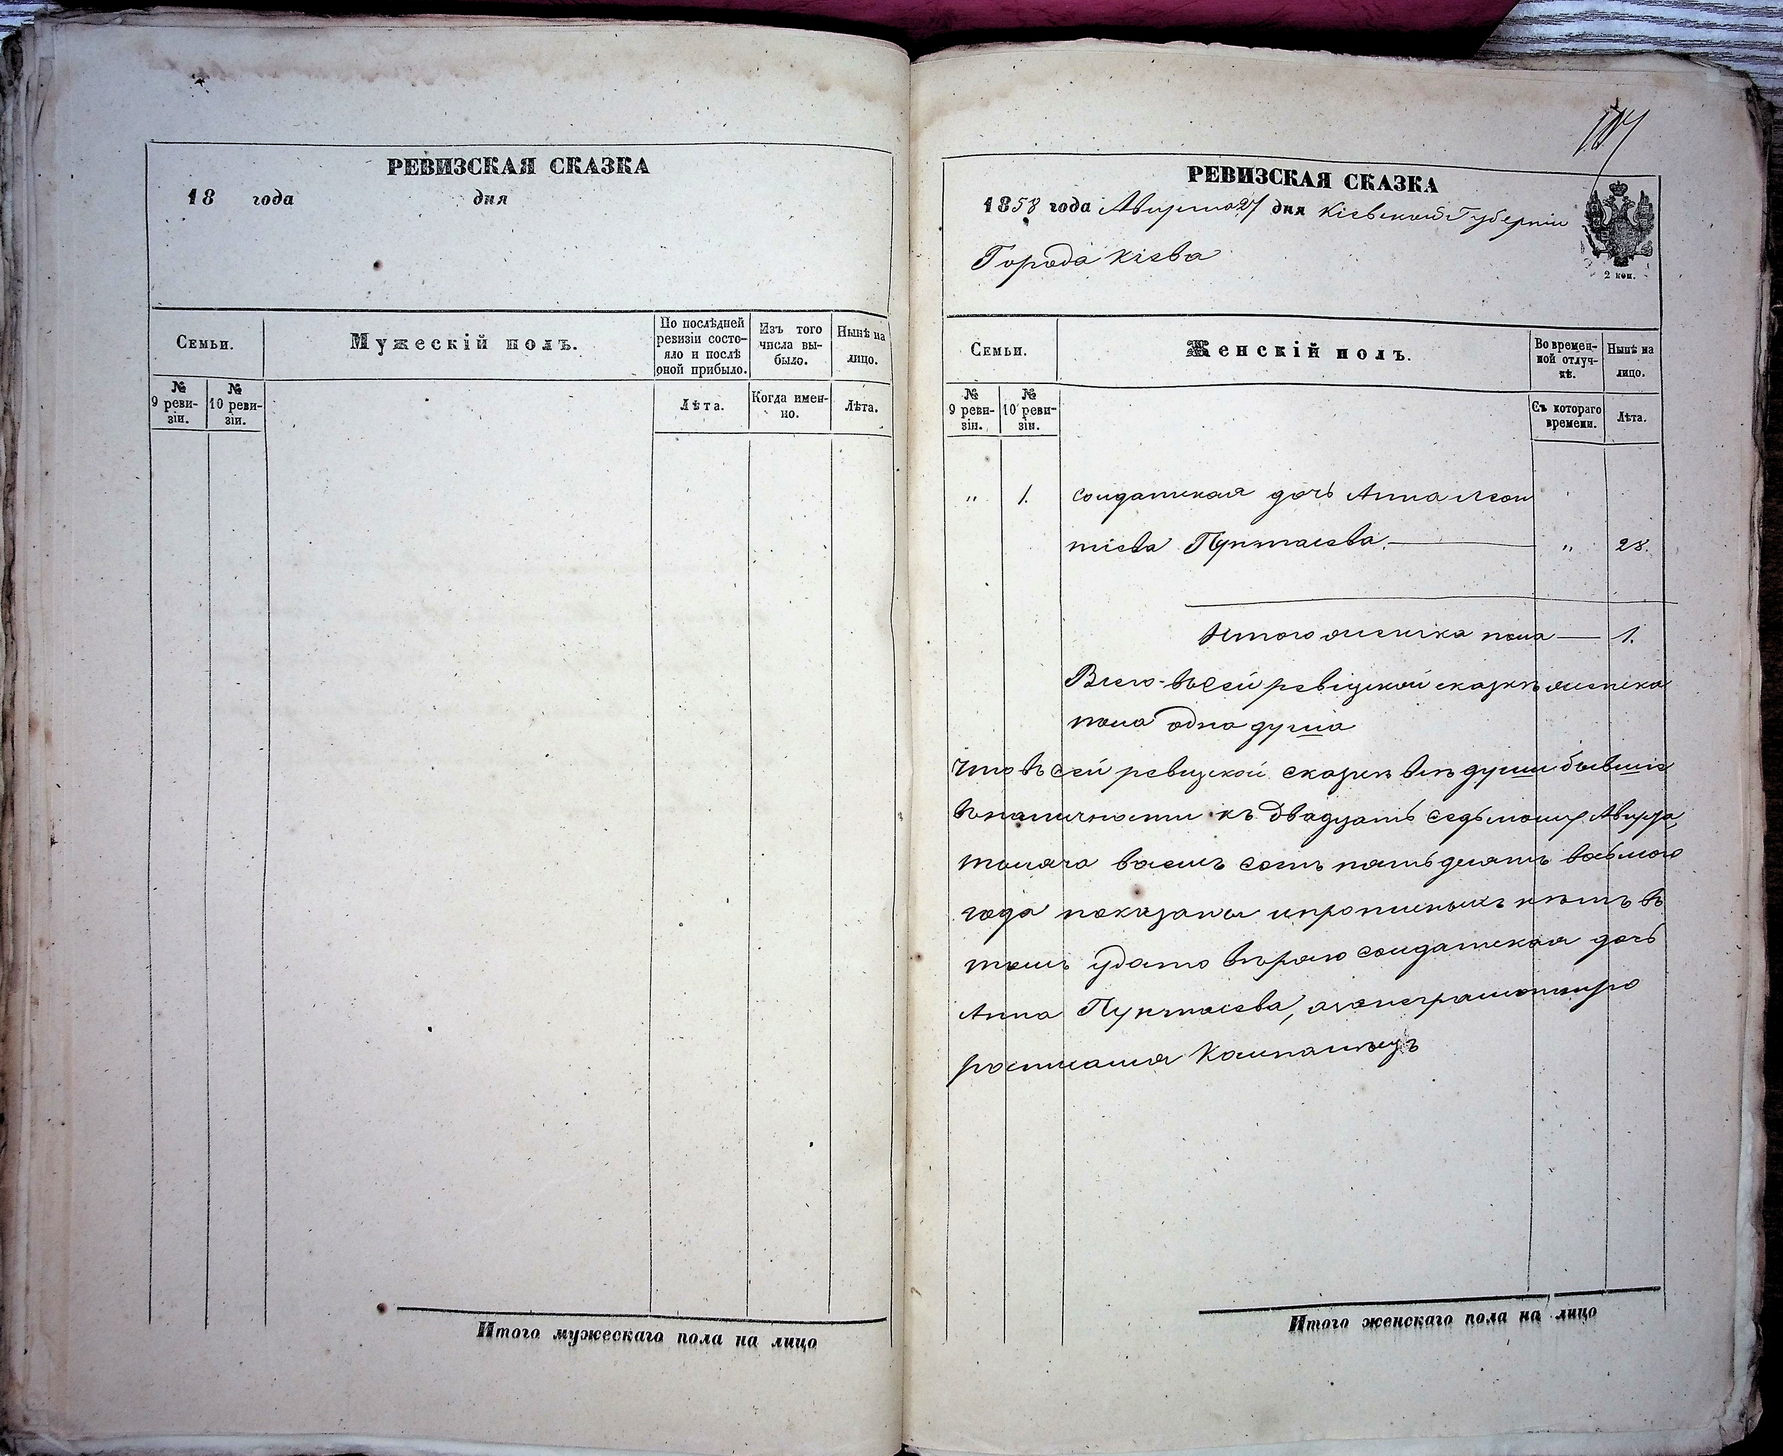 РЕВИЗСКАЯ СКАЗКА
18 года дня
Семьи.
Мужескій полъ.
По послѣдней ревизіи состояло и послѣ оной прибыло.
Изъ того числа выбыло.
Нынѣ на лицо.
№ 9 ревизіи.
№ 10 ревизіи.
Лѣта.
Когда именно.
Лѣта.
Итого мужескаго пола на лицо
РЕВИЗСКАЯ СКАЗКА
1858 года Августа 27 дня Кіевской Губерніи
Города Кіева
2 коп.
Семьи.
Женскій полъ.
Во временной отлучкѣ.
Нынѣ на лицо.
№ 9 ревизіи.
№ 10 ревизіи.
Съ котораго времени.
Лѣта.
" 1. Солдатская дочь Анна Леон
тіева " 28.
Итого женска пола — 1.
Всего въ сей ревизской сказкѣ женска
пола одна душа
Что въ сей ревизской сказкѣ всѣ души бывшіе
въ наличности къ двадцать седьмому Августа,
тысяча восемь сотъ пятьдесятъ восьмого
года показаны и прописныхъ нѣтъ въ
томъ солдатская дочь
Анна
росписался
Итого женскаго пола на лицо